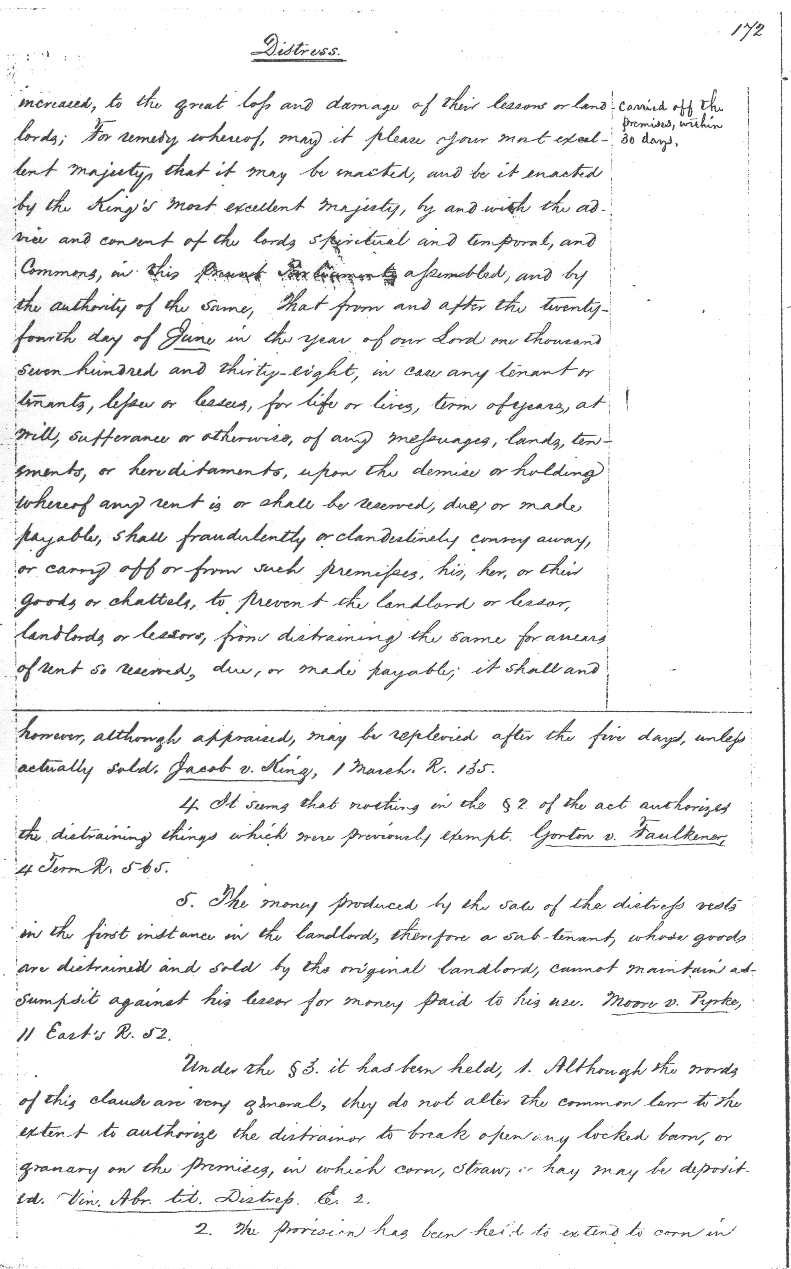 172
Distress.
increased, to the great loss and damage of their lessors or land
lords; For remedy whereof, may it please your most excel-
lent majesty, that it may be enacted, and be it enacted
by the King's most excellent majesty, by and with the ad-
vice and consent of the lords spiritual and temporal, and
Commons, in this present Parliament assembled, and by
the authority of the same, That from and after the twenty-
fourth day of June in the year of our Lord one thousand
seven hundred and thirty-eight, in case any tenant or
tenants, lessee or lessees, for life or lives, term of years, at
will, sufferance or otherwise, of any messuages, lands, ten-
ements, or hereditaments, upon the demise or holding
whereof any rent is or shall be reserved, due, or made
payable, shall fraudulently or clandestinely convey away,
or carry off or from such premises, his, her, or their
goods or chattels, to prevent the landlord or lessor,
landlords or lessors, from distraining the same for arrears
of rent so reserved, due, or made payable; it shall and
carried off the
premises, within
30 days.
however, although appraised, may be replevied after the five days, unless
actually sold. Jacob v. King, 1 March. R. 135.
4 It seems that nothing in the § 2 of the act authorizes
the distraining things which were previously exempt. Gorton v. Faulkener,
4 Term R. 565.
5. The money produced by the sale of the distress vests
in the first instance in the landlord, therefore a sub-tenant, whose goods
are distrained and sold by the original landlord, cannot maintain as-
sumpsit against his lessor for money paid to his use. Moore v. Pyrke,
11 East's R. 52.
Under the § 3. it has been held, 1. Although the words
of this clause are very general, they do not alter the common law to the
extent to authorize the distrainor to break open any locked barn, or
granary on the premises, in which corn, straw, or hay may be deposit-
ed. Vin. Abr. tit. Distress. E. 2.
2. The provision has been held to extend to corn in